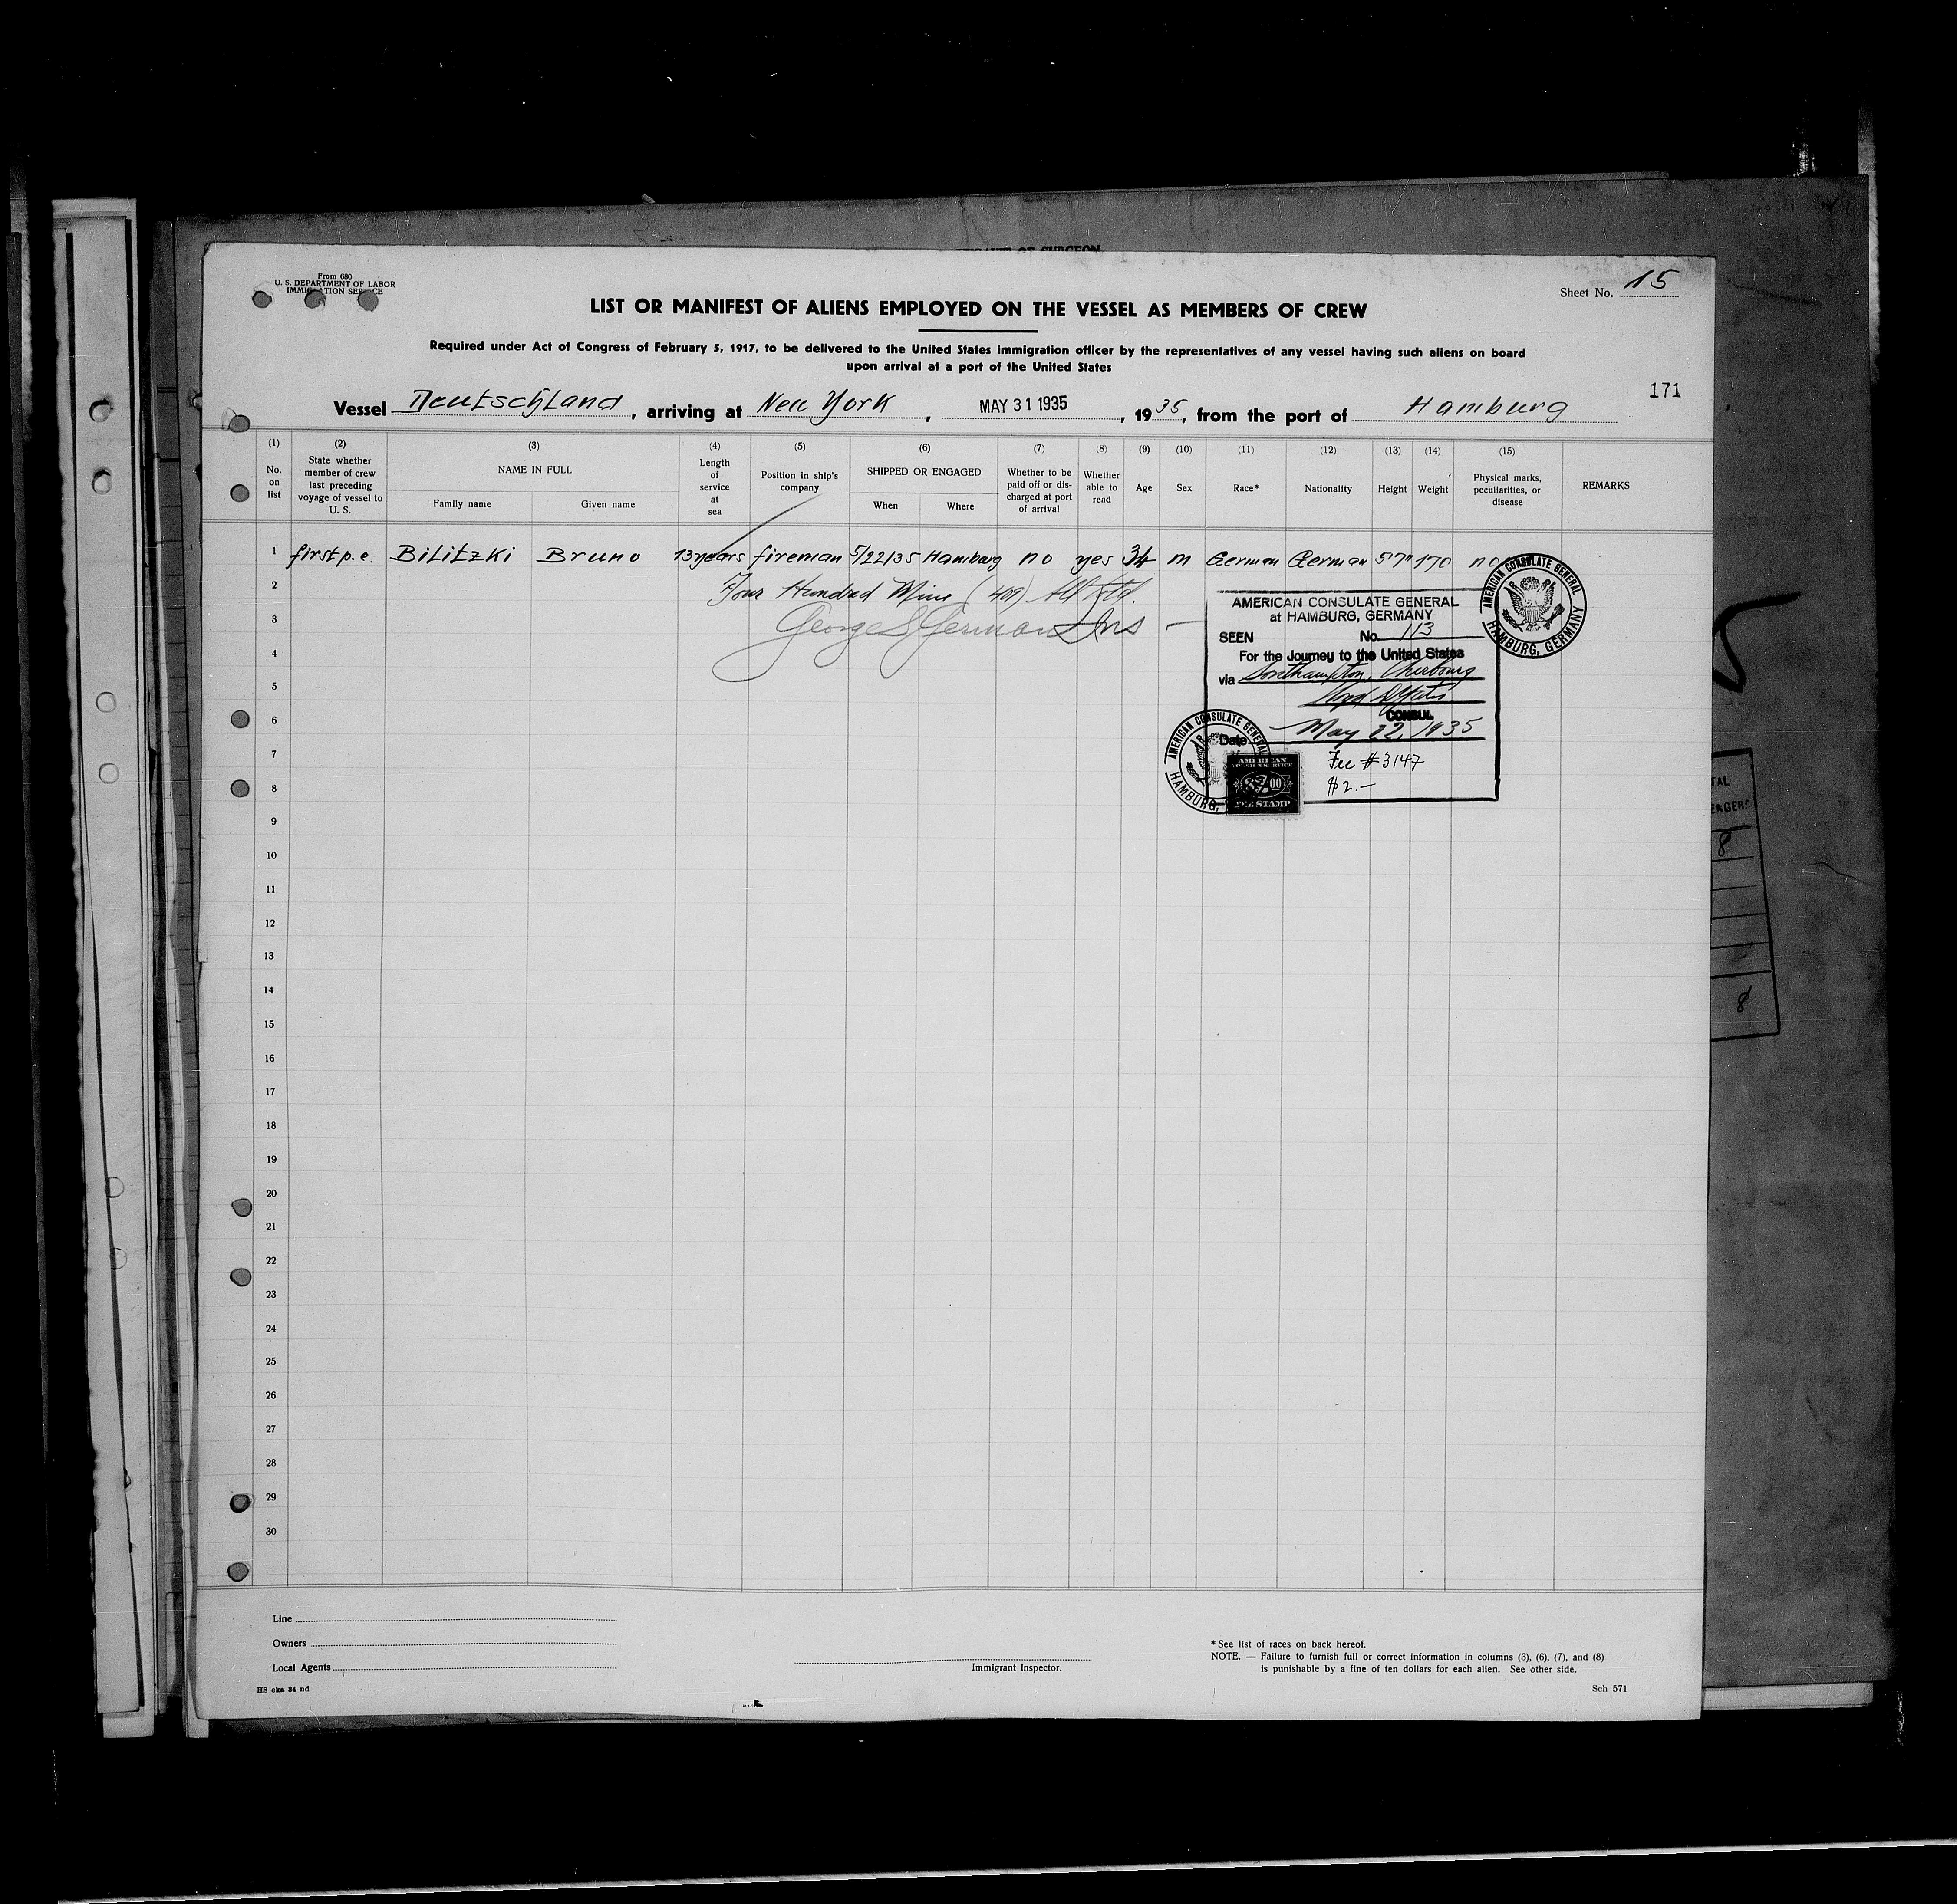 TIFICATE OF SURGEON
From 680
U. S. DEPARTMENT OF LABOR
IMMIGRATION SERVICE
Sheet No. 15
LIST OR MANIFEST OF ALIENS EMPLOYED ON THE VESSEL AS MEMBERS OF CREW
Required under Act of Congress of February 5, 1917, to be delivered to the United States immigration officer by the representatives of any vessel having such aliens on board
upon arrival at a port of the United States
171
Vessel Deutschland, arriving at New York, MAY 31 1935, 1935, from the port of Hamburg
(1) (2) (3) (4) (5) (6) (7) (8) (9) (10) (11) (12) (13) (14) (15)
No. on list
State whether member of crew last preceding voyage of vessel to U. S.
NAME IN FULL
Family name
Given name
Length of service at sea
Position in ship's company
SHIPPED OR ENGAGED
When
Where
Whether to be paid off or dis-charged at port of arrival
Whether able to read
Age
Sex
Race*
Nationality
Height
Weight
Physical marks, peculiarities, or disease
REMARKS
1 first p.e. Bilitzki Bruno 13 years fireman 5/22/35 Hamburg no yes 34 m German German 5'7" 170 no
2 Four Hundred Nine (409)
3 George S German Ins
4
5
6
7
8
9
10
11
12
13
14
15
16
17
18
19
20
21
22
23
24
25
26
27
28
29
30
AMERICAN CONSULATE GENERAL
at HAMBURG, GERMANY
SEEN No. 113
For the Journey to the United States
via Southampton, Cherbourg
CONSUL
Date May 22, 1935
Fee #3147
$2.—
AMERICAN CONSULATE GENERAL HAMBURG, GERMANY
AMERICAN CONSULATE GENERAL HAMBURG,
AMERICAN
FOREIGN SERVICE
$2.00
FEE STAMP
TAL
ENGERS
8
8
Line
Owners
Local Agents
HS eka 34 nd
Immigrant Inspector.
* See list of races on back hereof.
NOTE. — Failure to furnish full or correct information in columns (3), (6), (7), and (8)
is punishable by a fine of ten dollars for each alien. See other side.
Sch 571